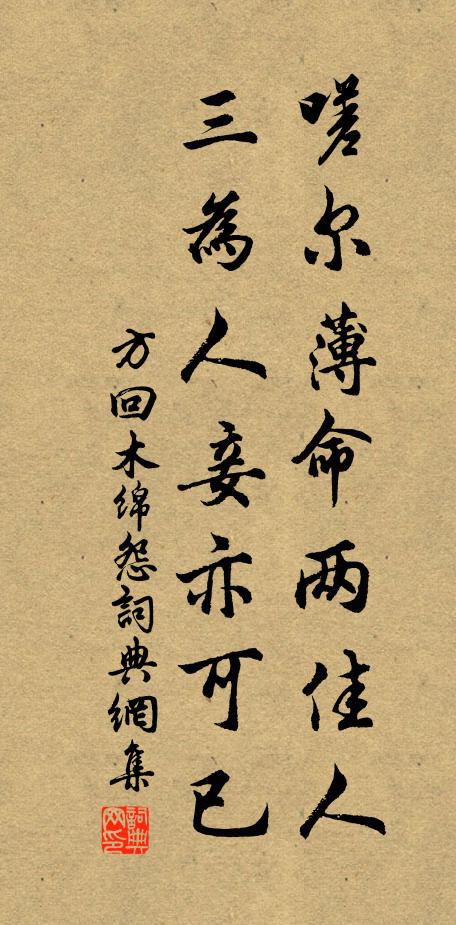 嗟尔薄命两佳人
三為人妾亦可已
方回木绵怨詞典網集
詞典网印